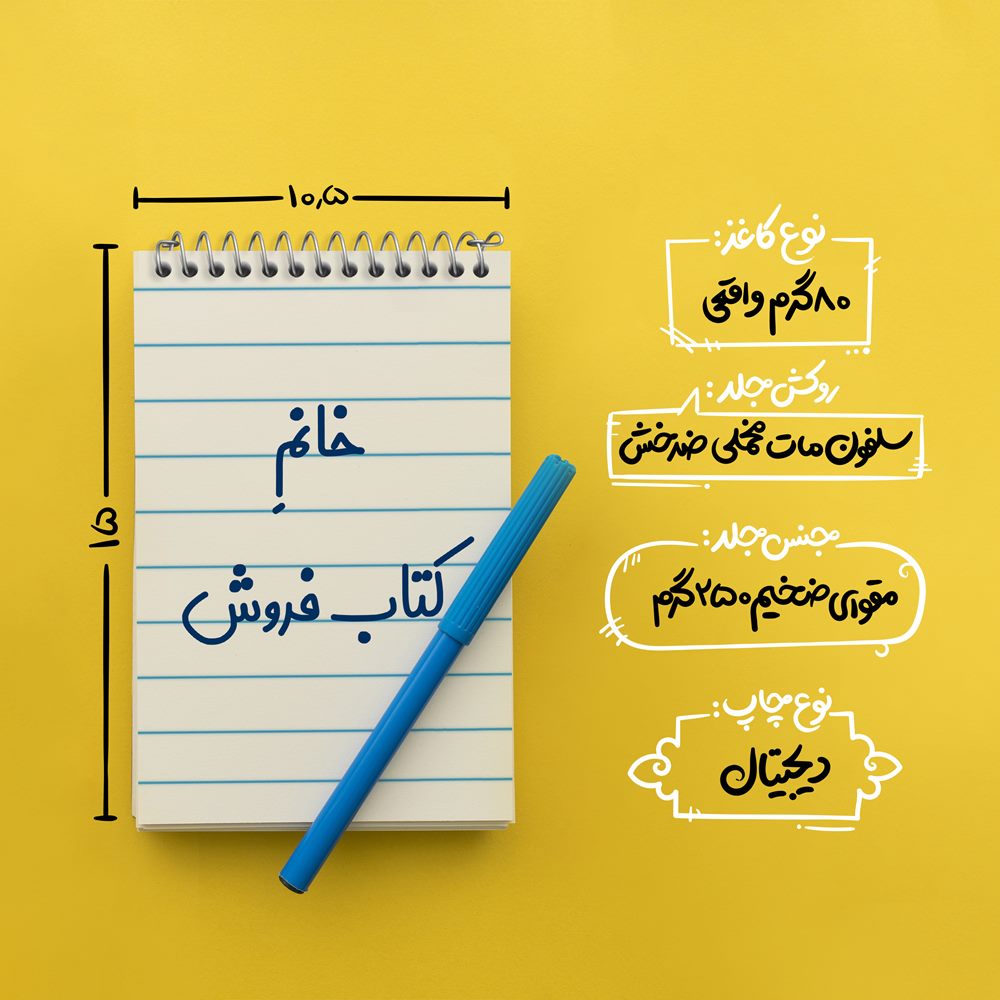 ۱۰,۵
۱۵
خانمِ
کتاب فروش
نوع کاغذ:
۸۰گرم واقعی
روکش جلد:
سلفون مات مخملی ضدخش
جنس جلد:
مقوای ضخیم ۲۵۰گرم
نوع چاپ:
دیجیتال